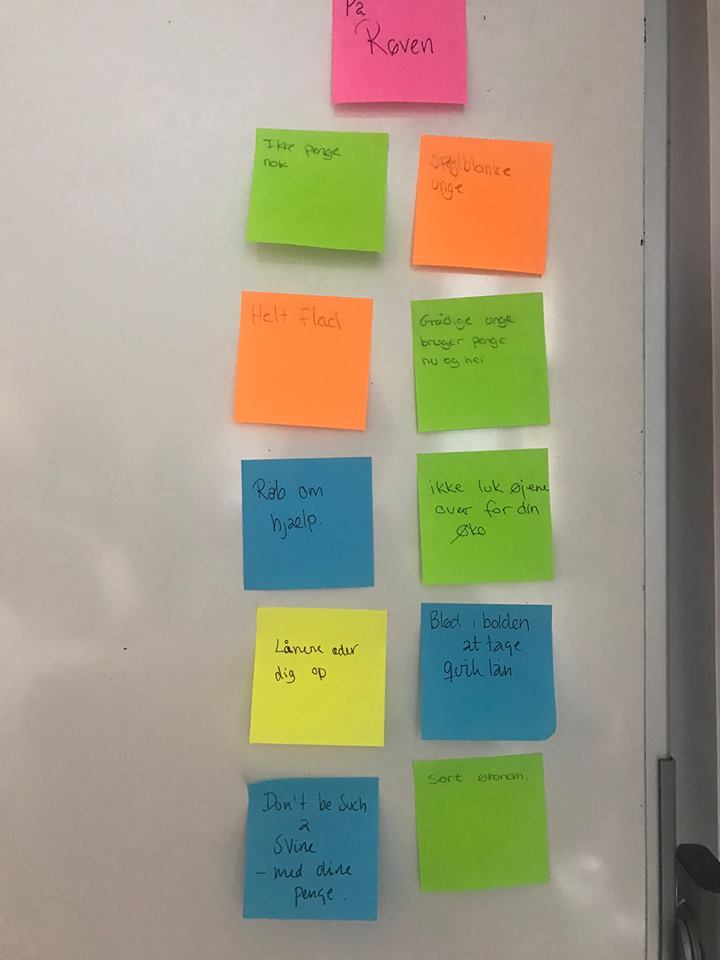 På
Røven
Ikke penge
nok
Spejlblanke
unge
Helt flad
Grådige unge
bruger penge
nu og her.
Råb om
hjælp.
ikke luk øjene
over for din
øko
Lånene æder
dig op
Blød i bolden
at tage
quik lån
Don't be Such
a
Svine
- med dine
penge.
Sort økonom.